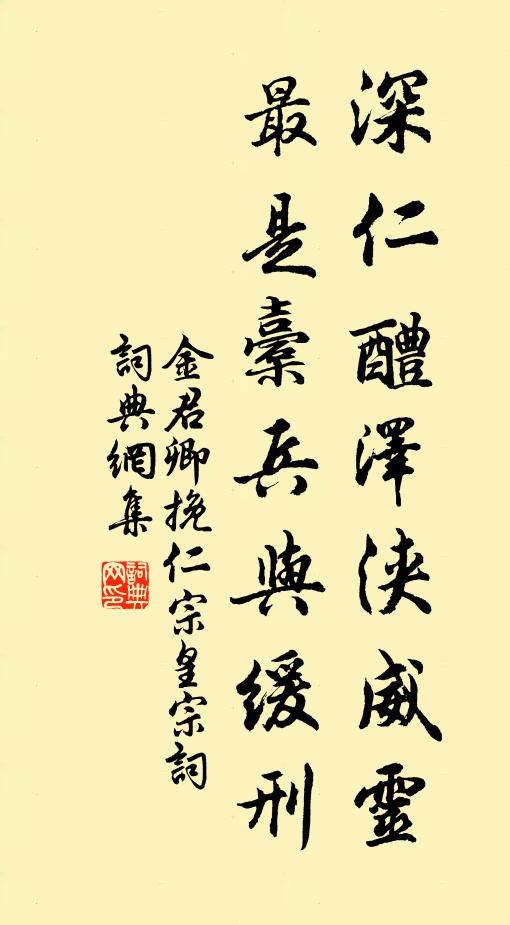 深仁醴澤浹威靈
最是櫜兵與緩刑
金君卿挽仁宗皇宗詞
詞典網集